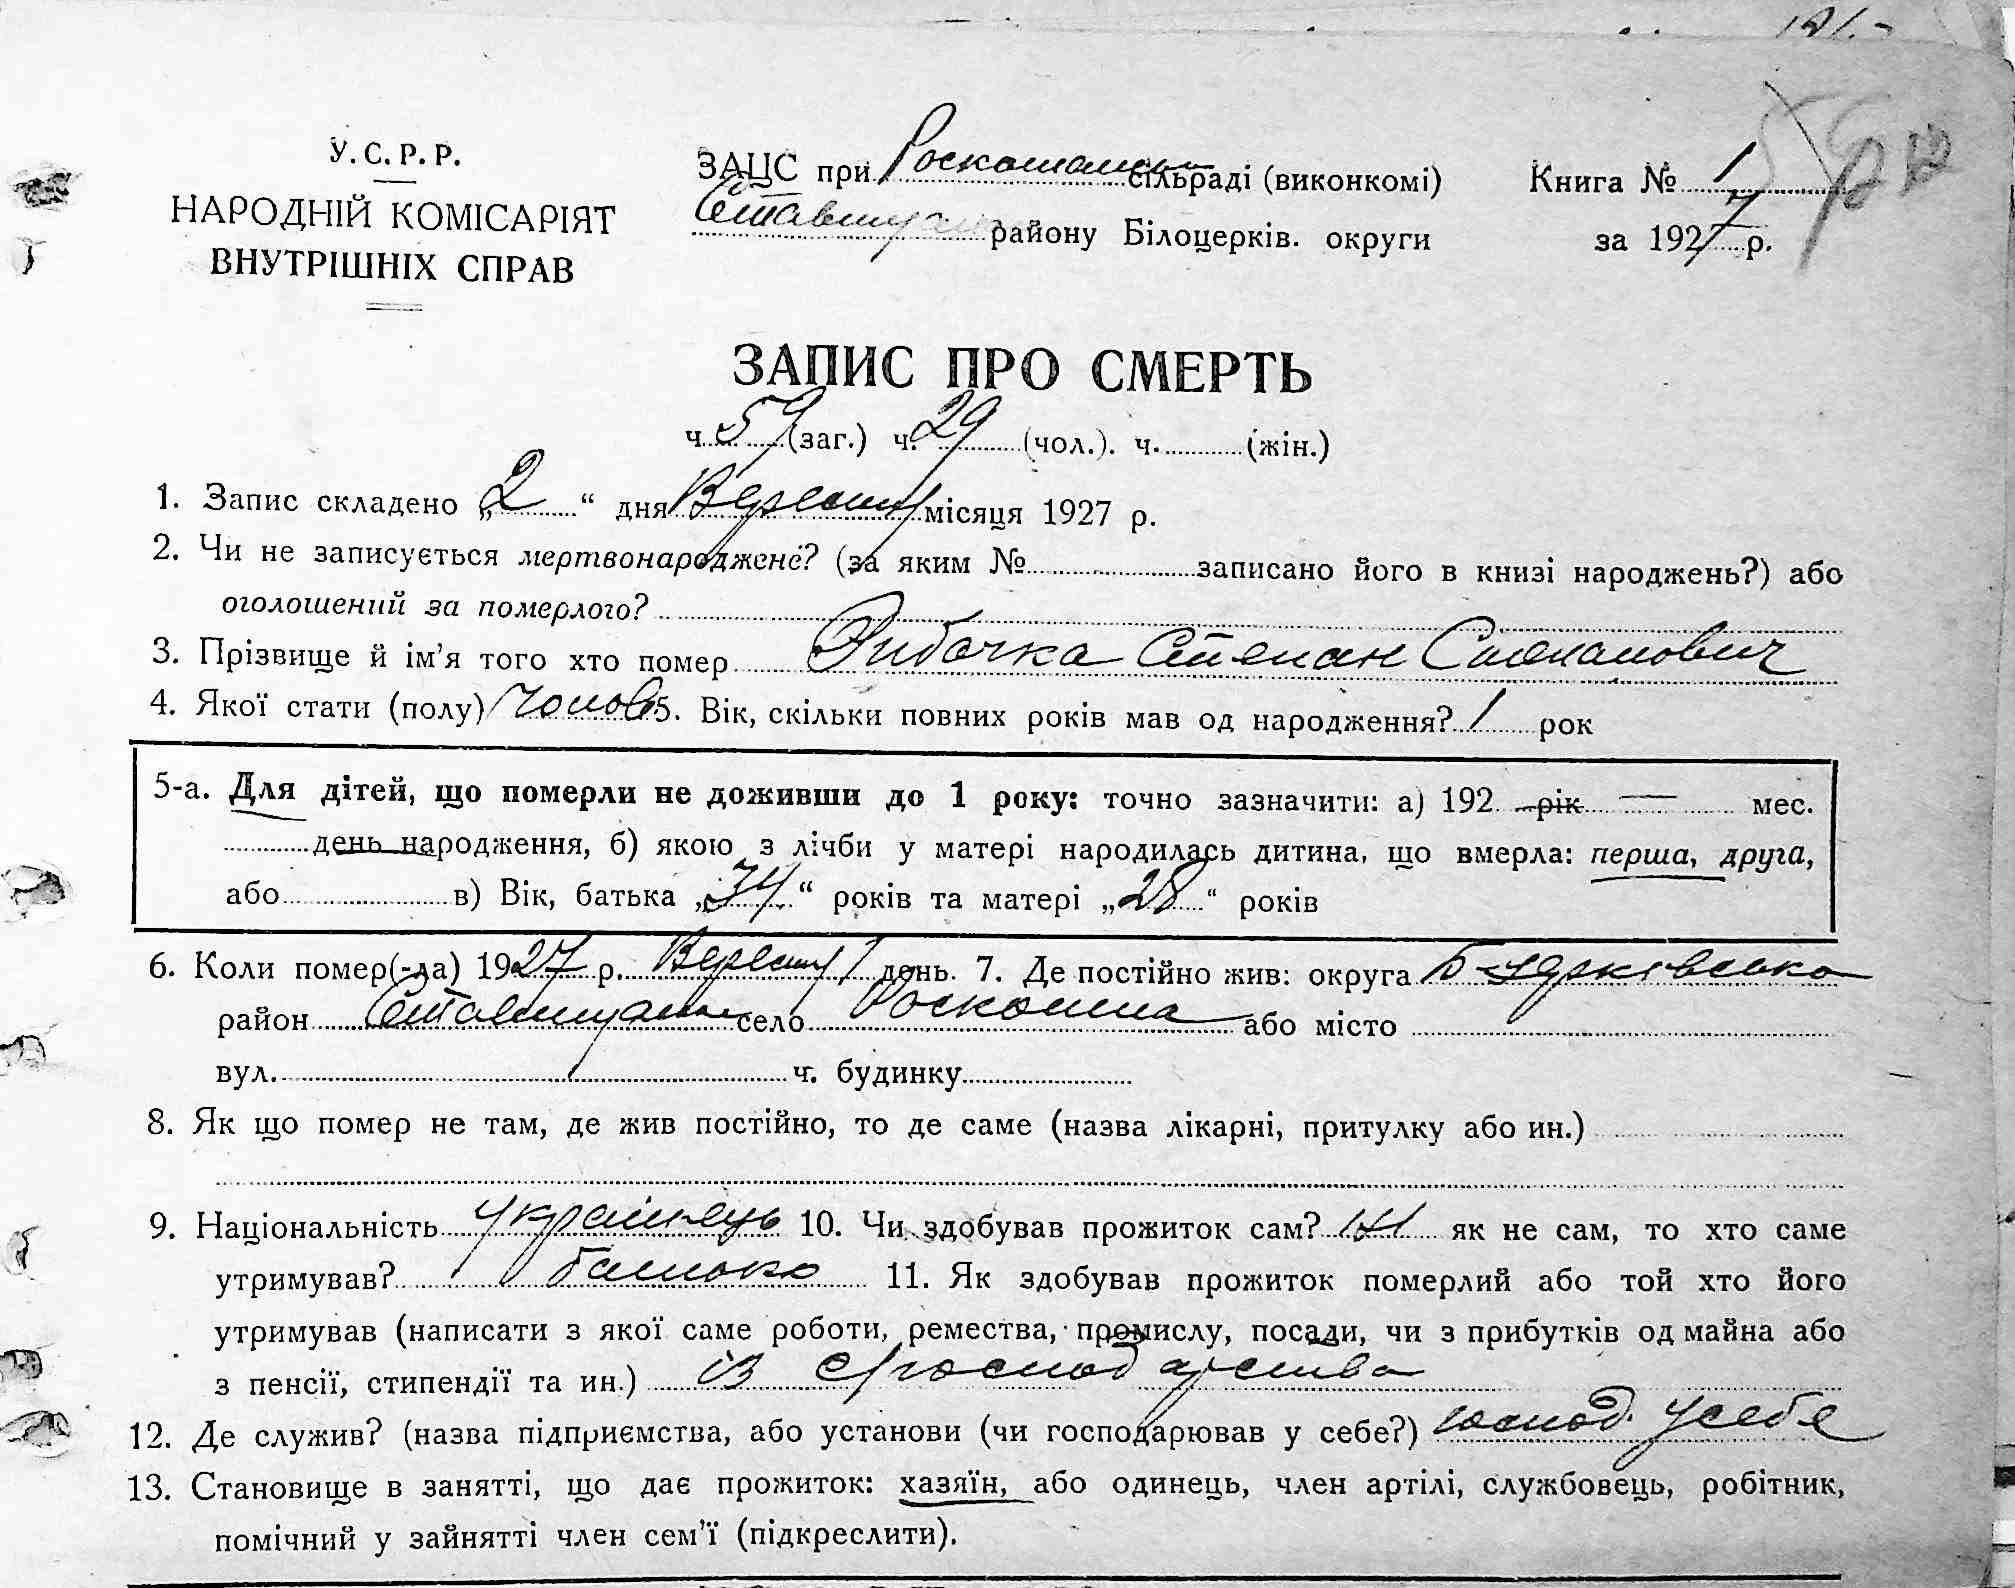 121.-
У. С. Р. Р.
НАРОДНІЙ КОМІСАРІЯТ
ВНУТРІШНІХ СПРАВ
ЗАЦС при Роскошанськ сільраді (виконкомі)
Ставищан району Білоцерків. округи
Книга № 1
за 1927 р.
ЗАПИС ПРО СМЕРТЬ
ч. 59 (заг.) ч. 29 (чол.). ч. (жін.)
1. Запис складено „2“ дня Вересня місяця 1927 р.
2. Чи не записується мертвонароджене? (за яким № записано його в книзі народжень?) або
оголошений за померлого?
3. Прізвище й ім’я того хто помер Рибачка Степан Степанович
4. Якої стати (полу) Чолов 5. Вік, скільки повних років мав од народження? 1 рок
5-а. Для дітей, що померли не доживши до 1 року: точно зазначити: а) 192 рік — мес.
день народження, б) якою з лічби у матері народилась дитина, що вмерла: перша, друга,
або в) Вік, батька „34“ років та матері „28“ років
6. Коли помер(-ла) 1927 р. Вересня 1 день. 7. Де постійно жив: округа Б-церківська
район Ставищан село Роскошна або місто
вул. ч. будинку
8. Як що помер не там, де жив постійно, то де саме (назва лікарні, притулку або ин.)
9. Національність українець 10. Чи здобував прожиток сам? ні як не сам, то хто саме
утримував? батько 11. Як здобував прожиток померлий або той хто його
утримував (написати з якої саме роботи, ремества, промислу, посади, чи з прибутків од майна або
з пенсії, стипендії та ин.) із господарства
12. Де служив? (назва підприємства, або установи (чи господарював у себе?) господ. у себе
13. Становище в занятті, що дає прожиток: хазяїн, або одинець, член артілі, службовець, робітник,
помічний у зайнятті член сем’ї (підкреслити).